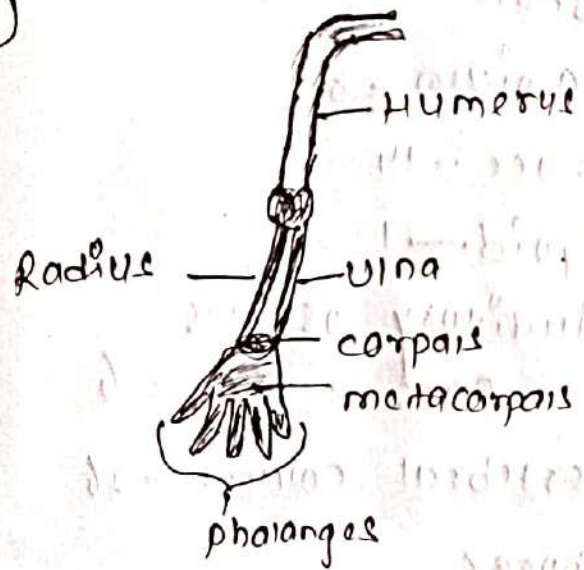 Humerus
Radius
ulna
carpals
metacarpals
phalanges